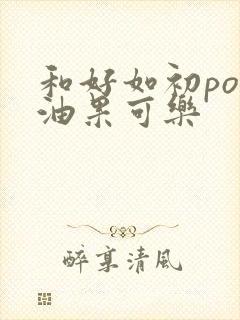 和好如初po
油果可樂
醉享清風